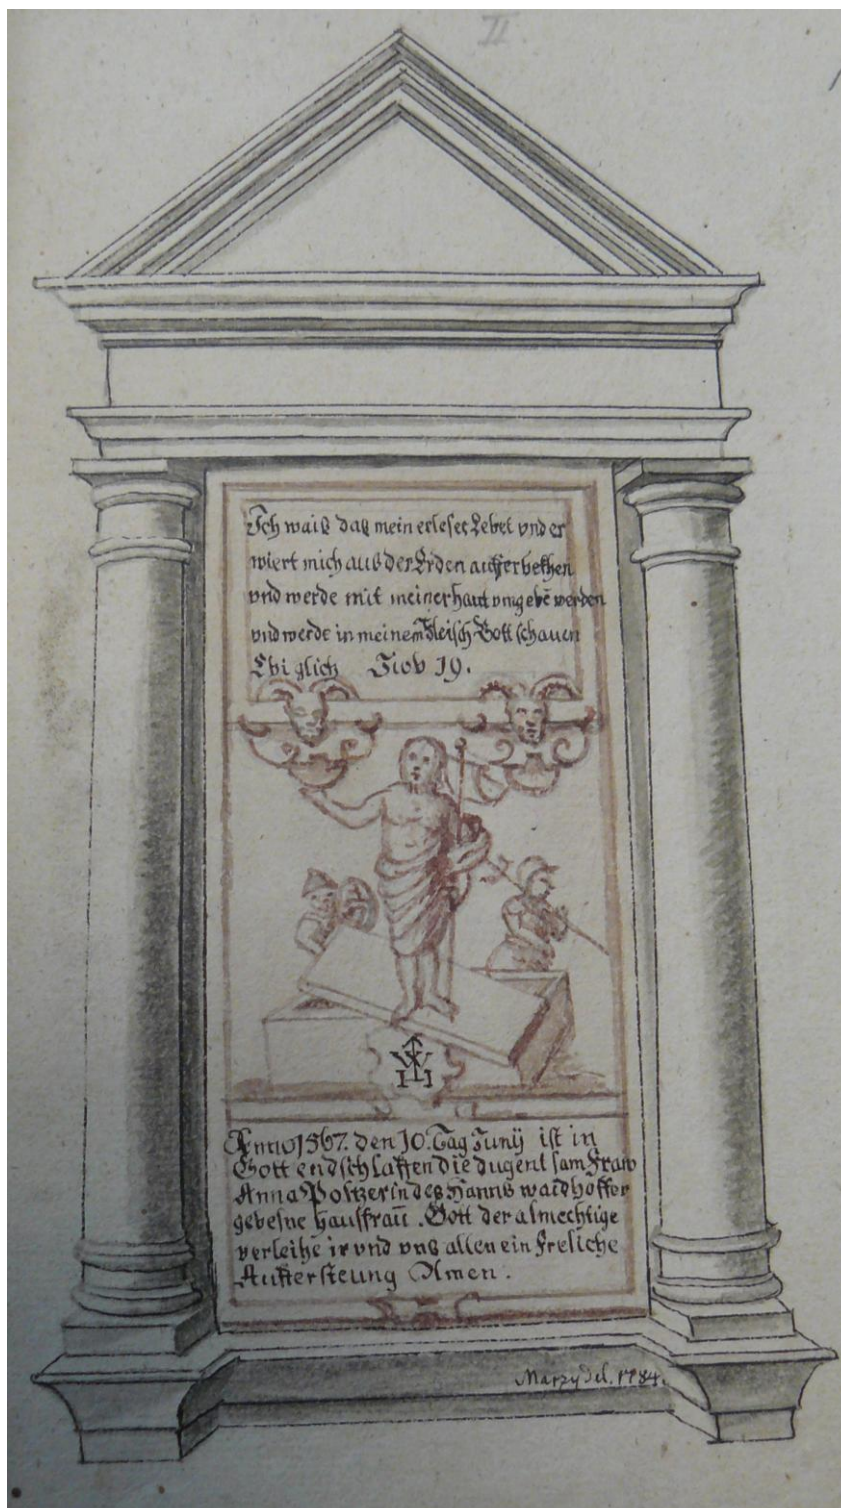 II
Ich waiß daß mein erleser Lebet vnd er
wiert mich auß der Erden aufferwekhen
vnd werde mit meiner haut vmgebē werden
vnd werde in meinem Fleisch Gott schauen
Ebiglich Iiob 19.
Anno 1567. den 10. Tag Junij ist in
Gott endschlaffen die dugentsam Fraw
Anna Poltzerin des Hanns waidhoffer
gebesne hausfraū. Gott der almechtige
verleihe ir vnd vnß allen ein freliche
Auffersteung Amen.
Marzy del. 1784.